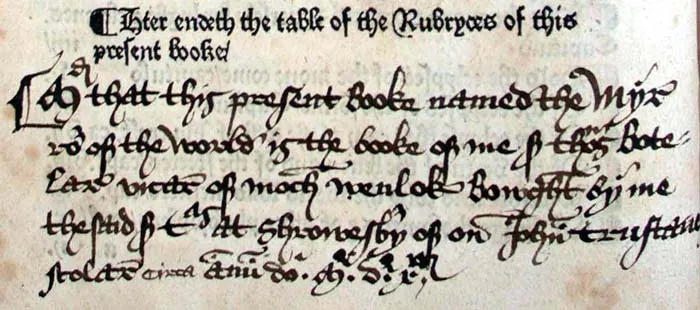 ¶ Hier endeth the table of the Rubryces of this
present booke/
that this present booke named the Myr
ror of the world is the booke of me Sr Thos Bote-
lar vicar of moch wenlok bowght by me
the said Sr at Shrowesby of on John
scolar circa annu do.